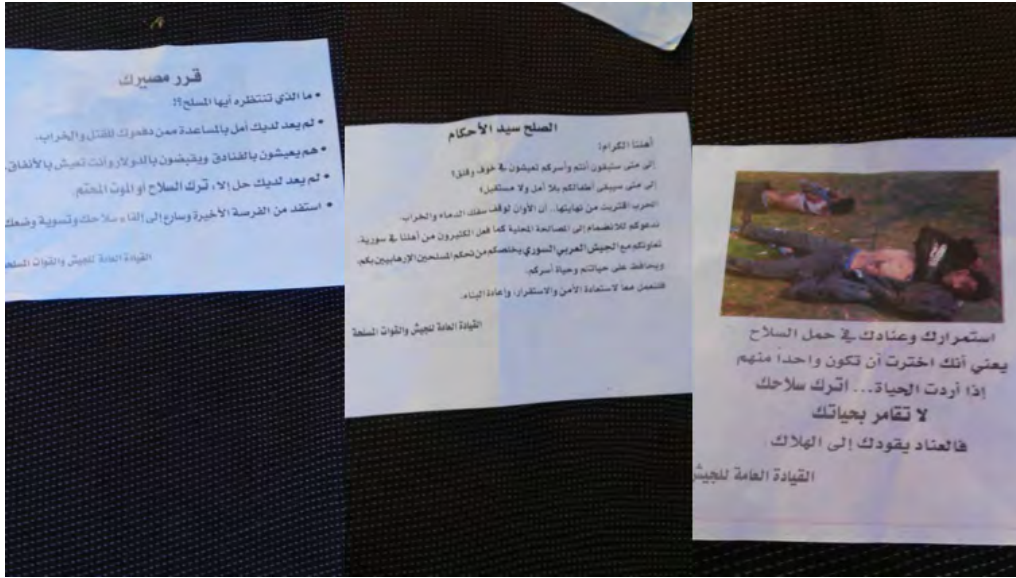 قرر مصيرك
• ما الذي تنتظره أيها المسلح؟!
• لم يعد لديك أمل بالمساعدة ممن دفعوك للقتل والخراب.
• هم يعيشون بالفنادق ويقبضون بالدولار وأنت تعيش بالأنفاق.
• لم يعد لديك حل إلا، ترك السلاح أو الموت المحتم.
• استفد من الفرصة الأخيرة وسارع إلى إلقاء سلاحك وتسوية وضعك
القيادة العامة للجيش والقوات المسلحة
الصلح سيد الأحكام
أهلنا الكرام:
إلى متى ستبقون أنتم وأسركم تعيشون في خوف وقلق؟
إلى متى سيبقى أطفالكم بلا أمل ولا مستقبل؟
الحرب اقتربت من نهايتها.. آن الأوان لوقف سفك الدماء والخراب.
ندعوكم للانضمام إلى المصالحة المحلية كما فعل الكثيرون من أهلنا في سورية.
تعاونكم مع الجيش العربي السوري يخلصكم من تحكم المسلحين الإرهابيين بكم،
ويحافظ على حياتكم وحياة أسركم.
فلنعمل معا لاستعادة الأمن والاستقرار، وإعادة البناء.
القيادة العامة للجيش والقوات المسلحة
استمرارك وعنادك في حمل السلاح
يعني أنك اخترت أن تكون واحداً منهم
إذا أردت الحياة... اترك سلاحك
لا تقامر بحياتك
فالعناد يقودك إلى الهلاك
القيادة العامة للجيش